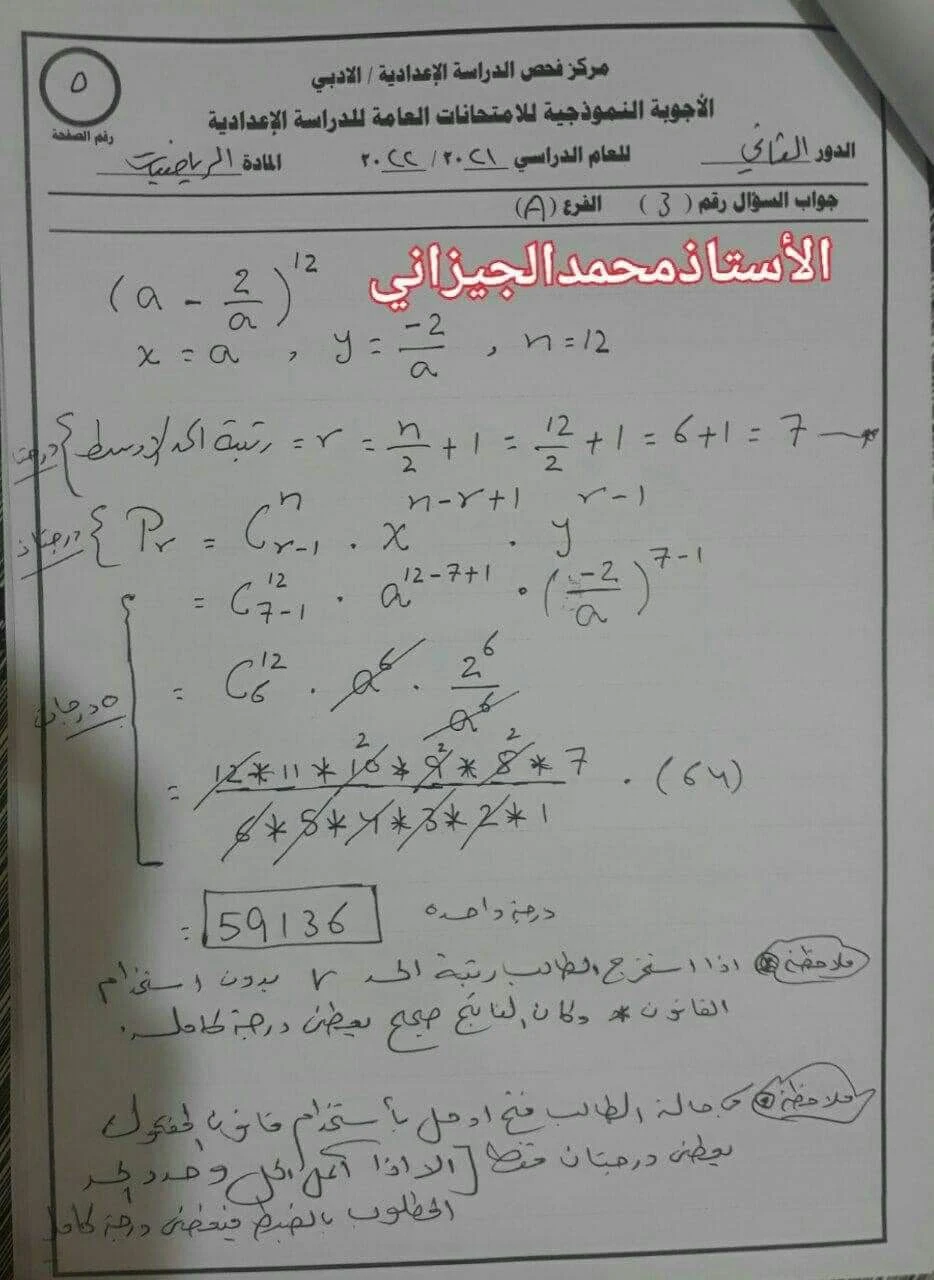 ٥
رقم الصفحة
مركز فحص الدراسة الإعدادية / الادبي
الأجوبة النموذجية للامتحانات العامة للدراسة الإعدادية
الدور الثاني للعام الدراسي ٢٠٢١ / ٢٠٢٢ المادة الرياضيات
جواب السؤال رقم ( 3 ) الفرع (A)
الأستاذمحمدالجيزاني
(a - 2/a)^12
x = a , y = -2/a , n = 12
رتبة الحد الاوسط = r = n/2 + 1 = 12/2 + 1 = 6 + 1 = 7 *
درجتان { P_r = C^n_{r-1} . x^{n-r+1} . y^{r-1}
= C^12_{7-1} . a^{12-7+1} . (-2/a)^{7-1}
= C^12_6 . a^6 . 2^6/a^6
٥ درجات
= 12*11*10*9*8*7 / 6*5*4*3*2*1 . (64)
= 59136 درجة واحدة
ملاحظة اذا استخرج الطالب رتبة الحد r بدون استخدام
القانون * وكان الناتج صحيح يعطى درجة كاملة.
ملاحظة في حالة الطالب فتح او حل بأستخدام قانون المفكوك
يعطى درجتان فقط [الا اذا أكمل الحل وحدد الحد
المطلوب بالضبط فيعطى درجة كاملة